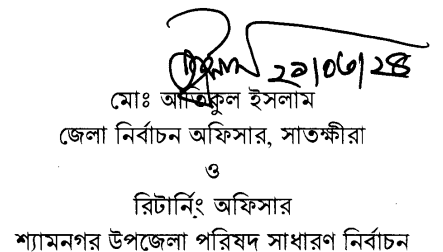 মোঃ আতিকুল ইসলাম
জেলা নির্বাচন অফিসার, সাতক্ষীরা
ও
রিটার্নিং অফিসার
শ্যামনগর উপজেলা পরিষদ সাধারণ নির্বাচন